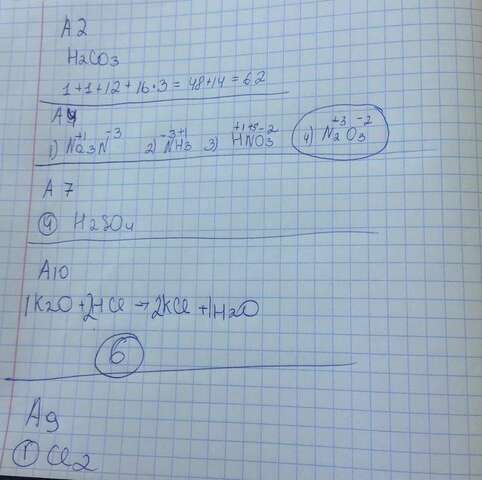 A2
H2CO3
1+1+12+16·3=48+14=62
A4
1) Na3N +1 -3 2) NH3 -3 +1 3) HNO3 +1 +5 -2 4) N2O3 +3 -2
A7
4 H2SO4
A10
1K2O+2HCl→2KCl+1H2O
6
A9
1 Cl2